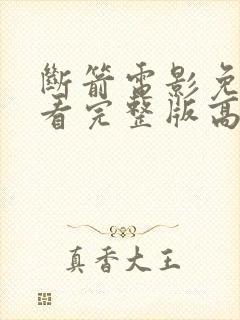 斷箭電影免
看完整版高
真香大王